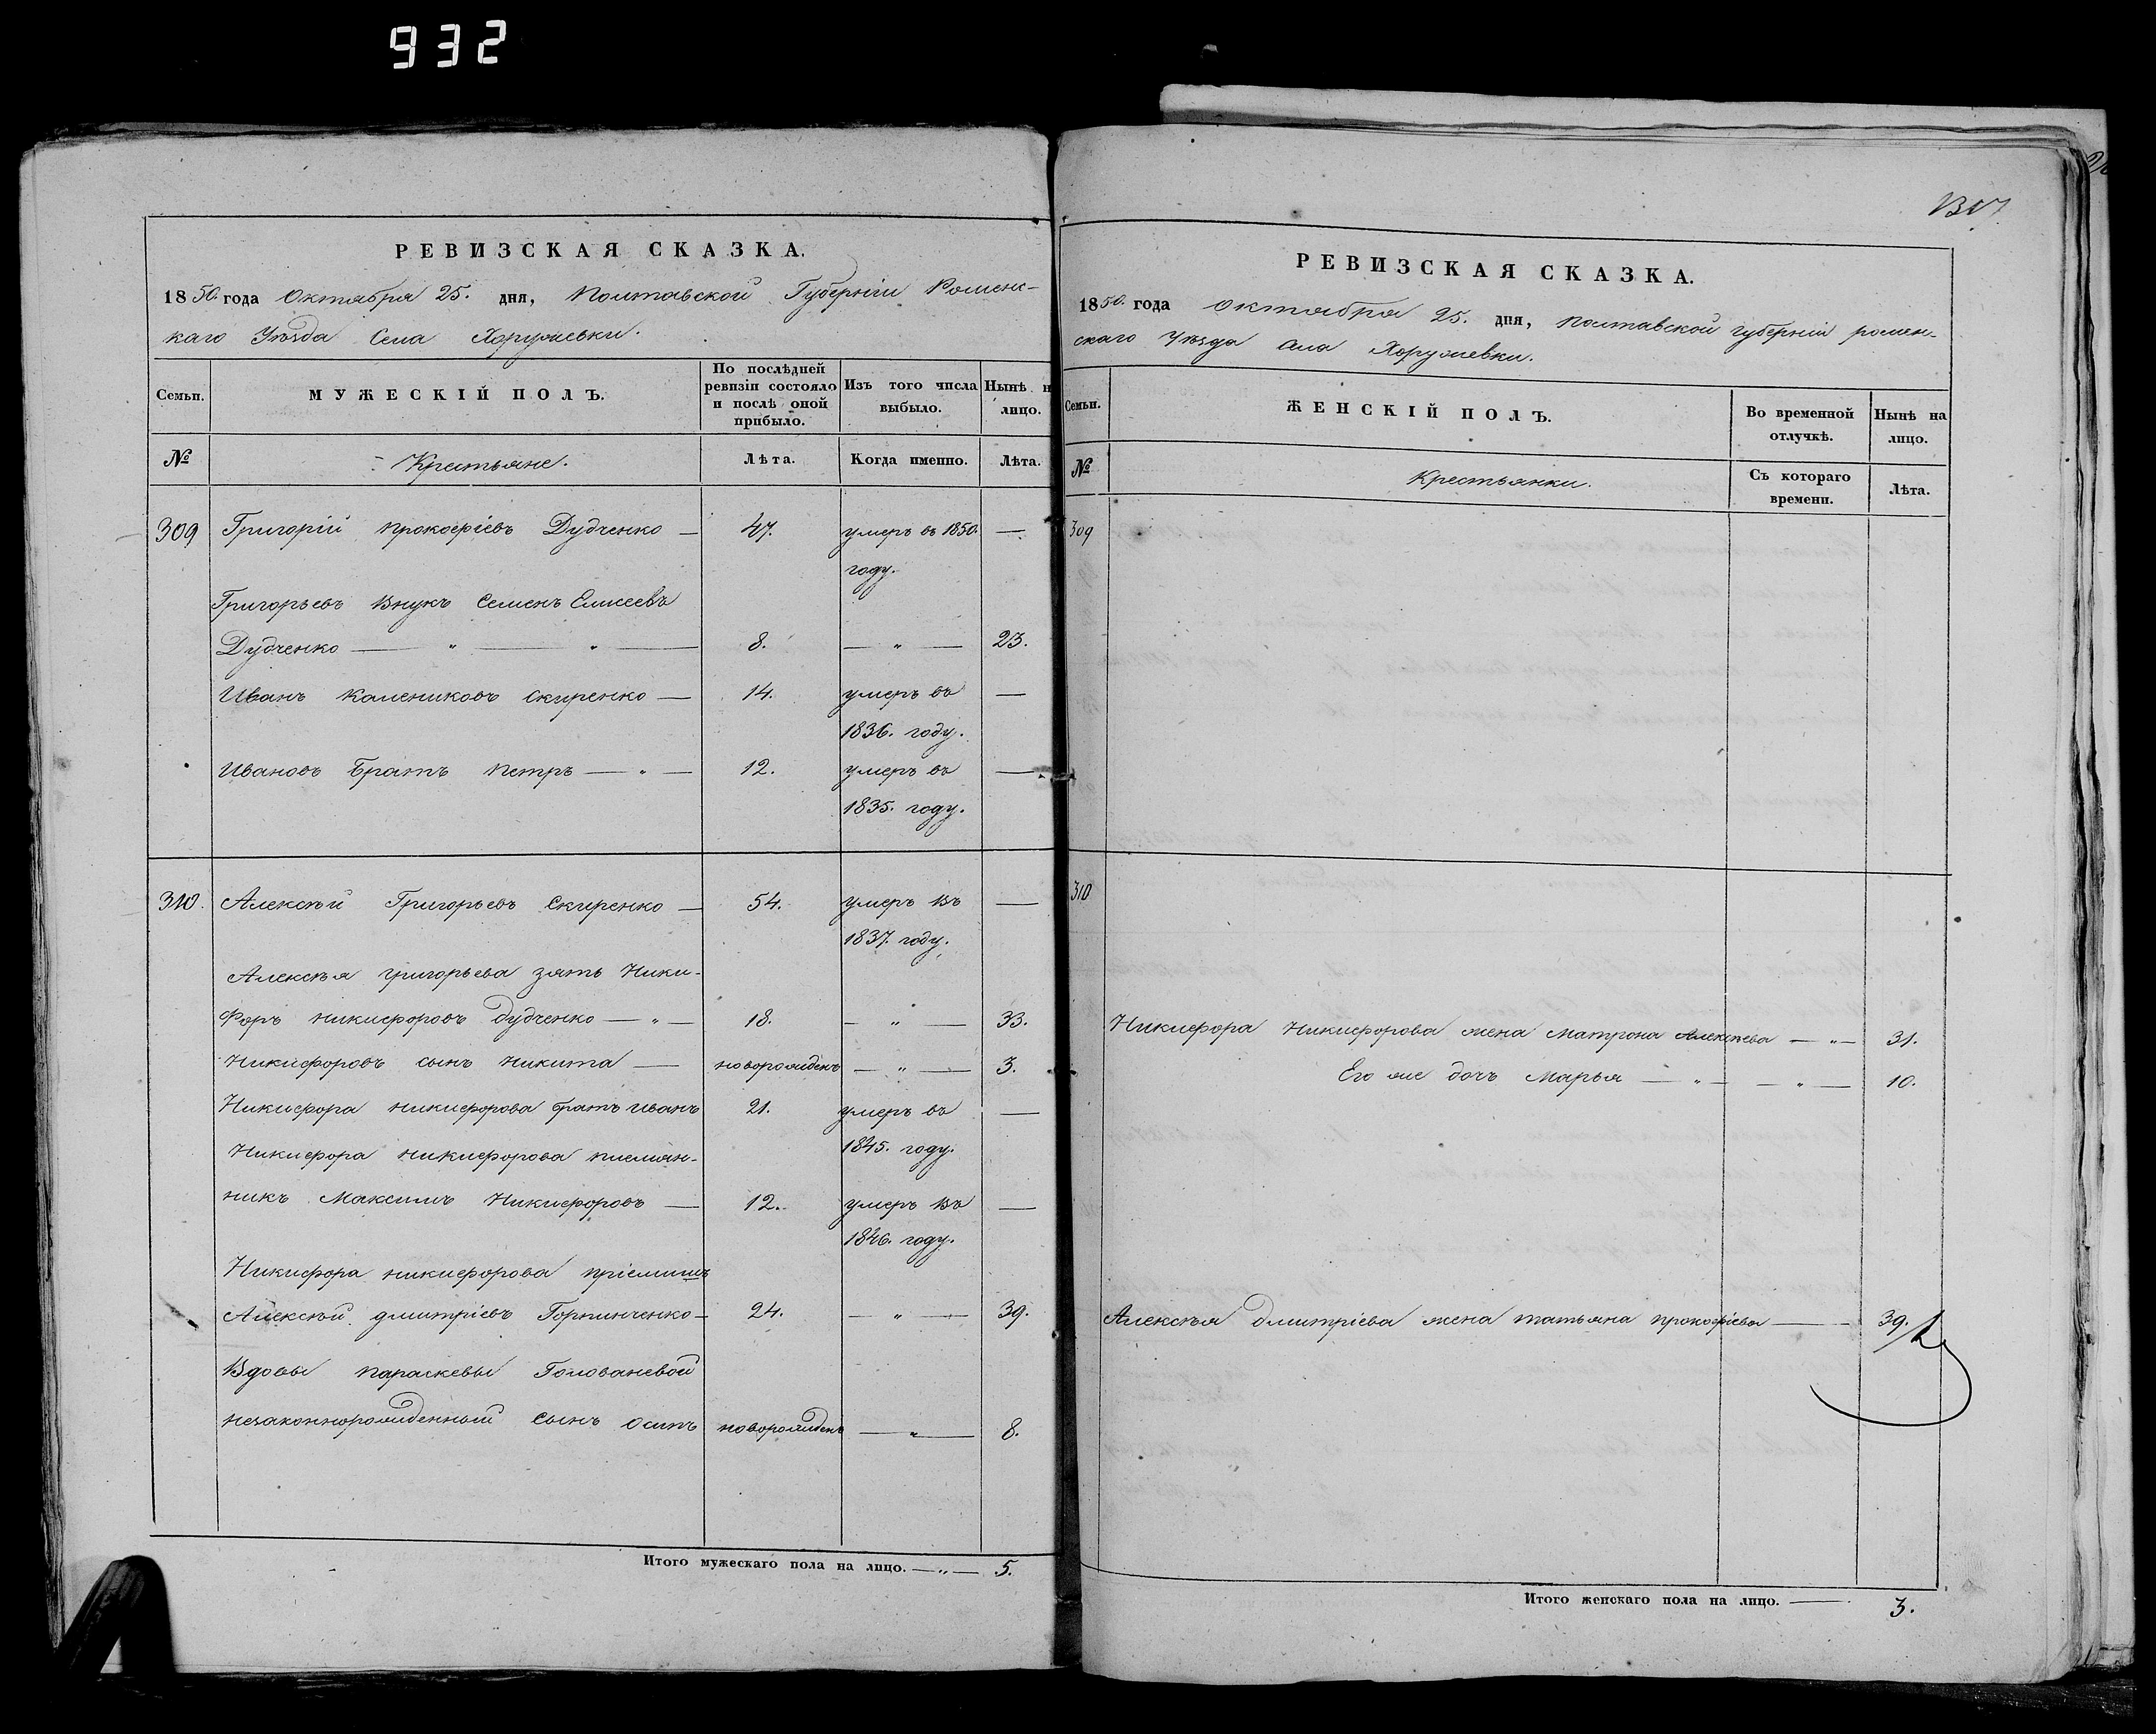 932
1317
РЕВИЗСКАЯ СКАЗКА.
1850. года Октября 25. дня, Полтавской Губерніи Ромен-
каго Уѣзда Села Хоружевки.
Семьи.
МУЖЕСКІЙ ПОЛЪ.
По послѣдней ревизіи состояло и послѣ оной прибыло.
Изъ того числа выбыло.
Нынѣ н лицо.
№
Крестьяне.
Лѣта.
Когда именно.
Лѣта.
309 Григорій Прокофіевъ Дудченко — 47. умеръ въ 1850. —
году.
Григорьевъ Внукъ Семенъ Елисеевъ
Дудченко — " — " — 8. — " — 23.
Иванъ Калениковъ Скиренко — 14. умеръ въ —
1836. году.
Ивановъ Братъ Петръ — " — 12. умеръ въ —
1835. году.
310. Алексѣй Григорьевъ Скиренко — 54. умеръ въ —
1837. году.
Алексѣя Григорьева зять Ники-
форъ Никифоровъ Дудченко — " — 18. — " — 33.
Никифоровъ сынъ Никита — новорожденъ — " — 3.
Никифора Никифорова братъ Иванъ 21. умеръ въ —
1845. году.
Никифора Никифорова племян-
никъ Максимъ Никифоровъ — 12. умеръ въ —
1846. году.
Никифора Никифорова пріемышъ
Алексѣй Дмитріевъ Горпинченко — 24. — " — 39.
Вдовы Параскевы Головановой
незаконнорожденный сынъ Осипъ новорожденъ — " — 8.
Итого мужескаго пола на лицо. — " — 5.
РЕВИЗСКАЯ СКАЗКА.
1850. года Октября 25. дня, Полтавской губерніи ромен-
скаго Уѣзда Села Хоружевки.
Семьи.
ЖЕНСКІЙ ПОЛЪ.
Во временной отлучкѣ.
Нынѣ на лицо.
№
Крестьянки.
Съ котораго времени.
Лѣта.
309
310
Никифора Никифорова жена Матрона Алексѣева — " — 31.
Его же дочь Марья — " — — " — 10.
Алексѣя Дмитріева жена Татьяна Прокофіева — 39.
Итого женскаго пола на лицо. — 3.